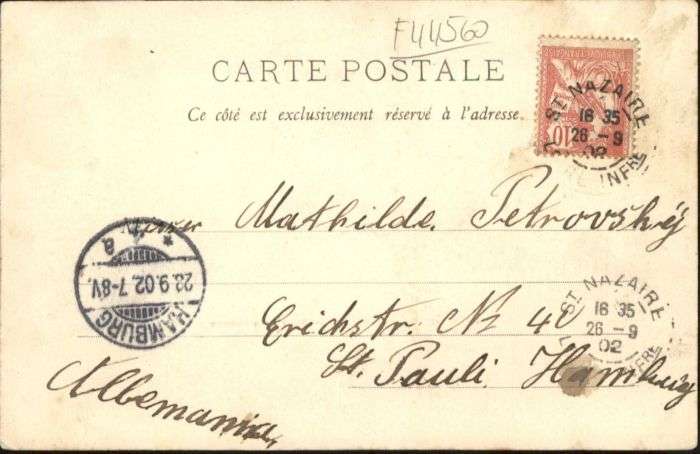 F44560
CARTE POSTALE
Ce côté est exclusivement réservé à l'adresse.
10
ST NAZAIRE
16 35
26 - 9
02
INFRE
Mathilde Petrovskÿ
Erichstr. No 40
St. Pauli Hamburg
Allemania
HAMBURG
28.9.02.7-8V.
* 1 a
ST NAZAIRE
16 35
26 - 9
02
INFRE